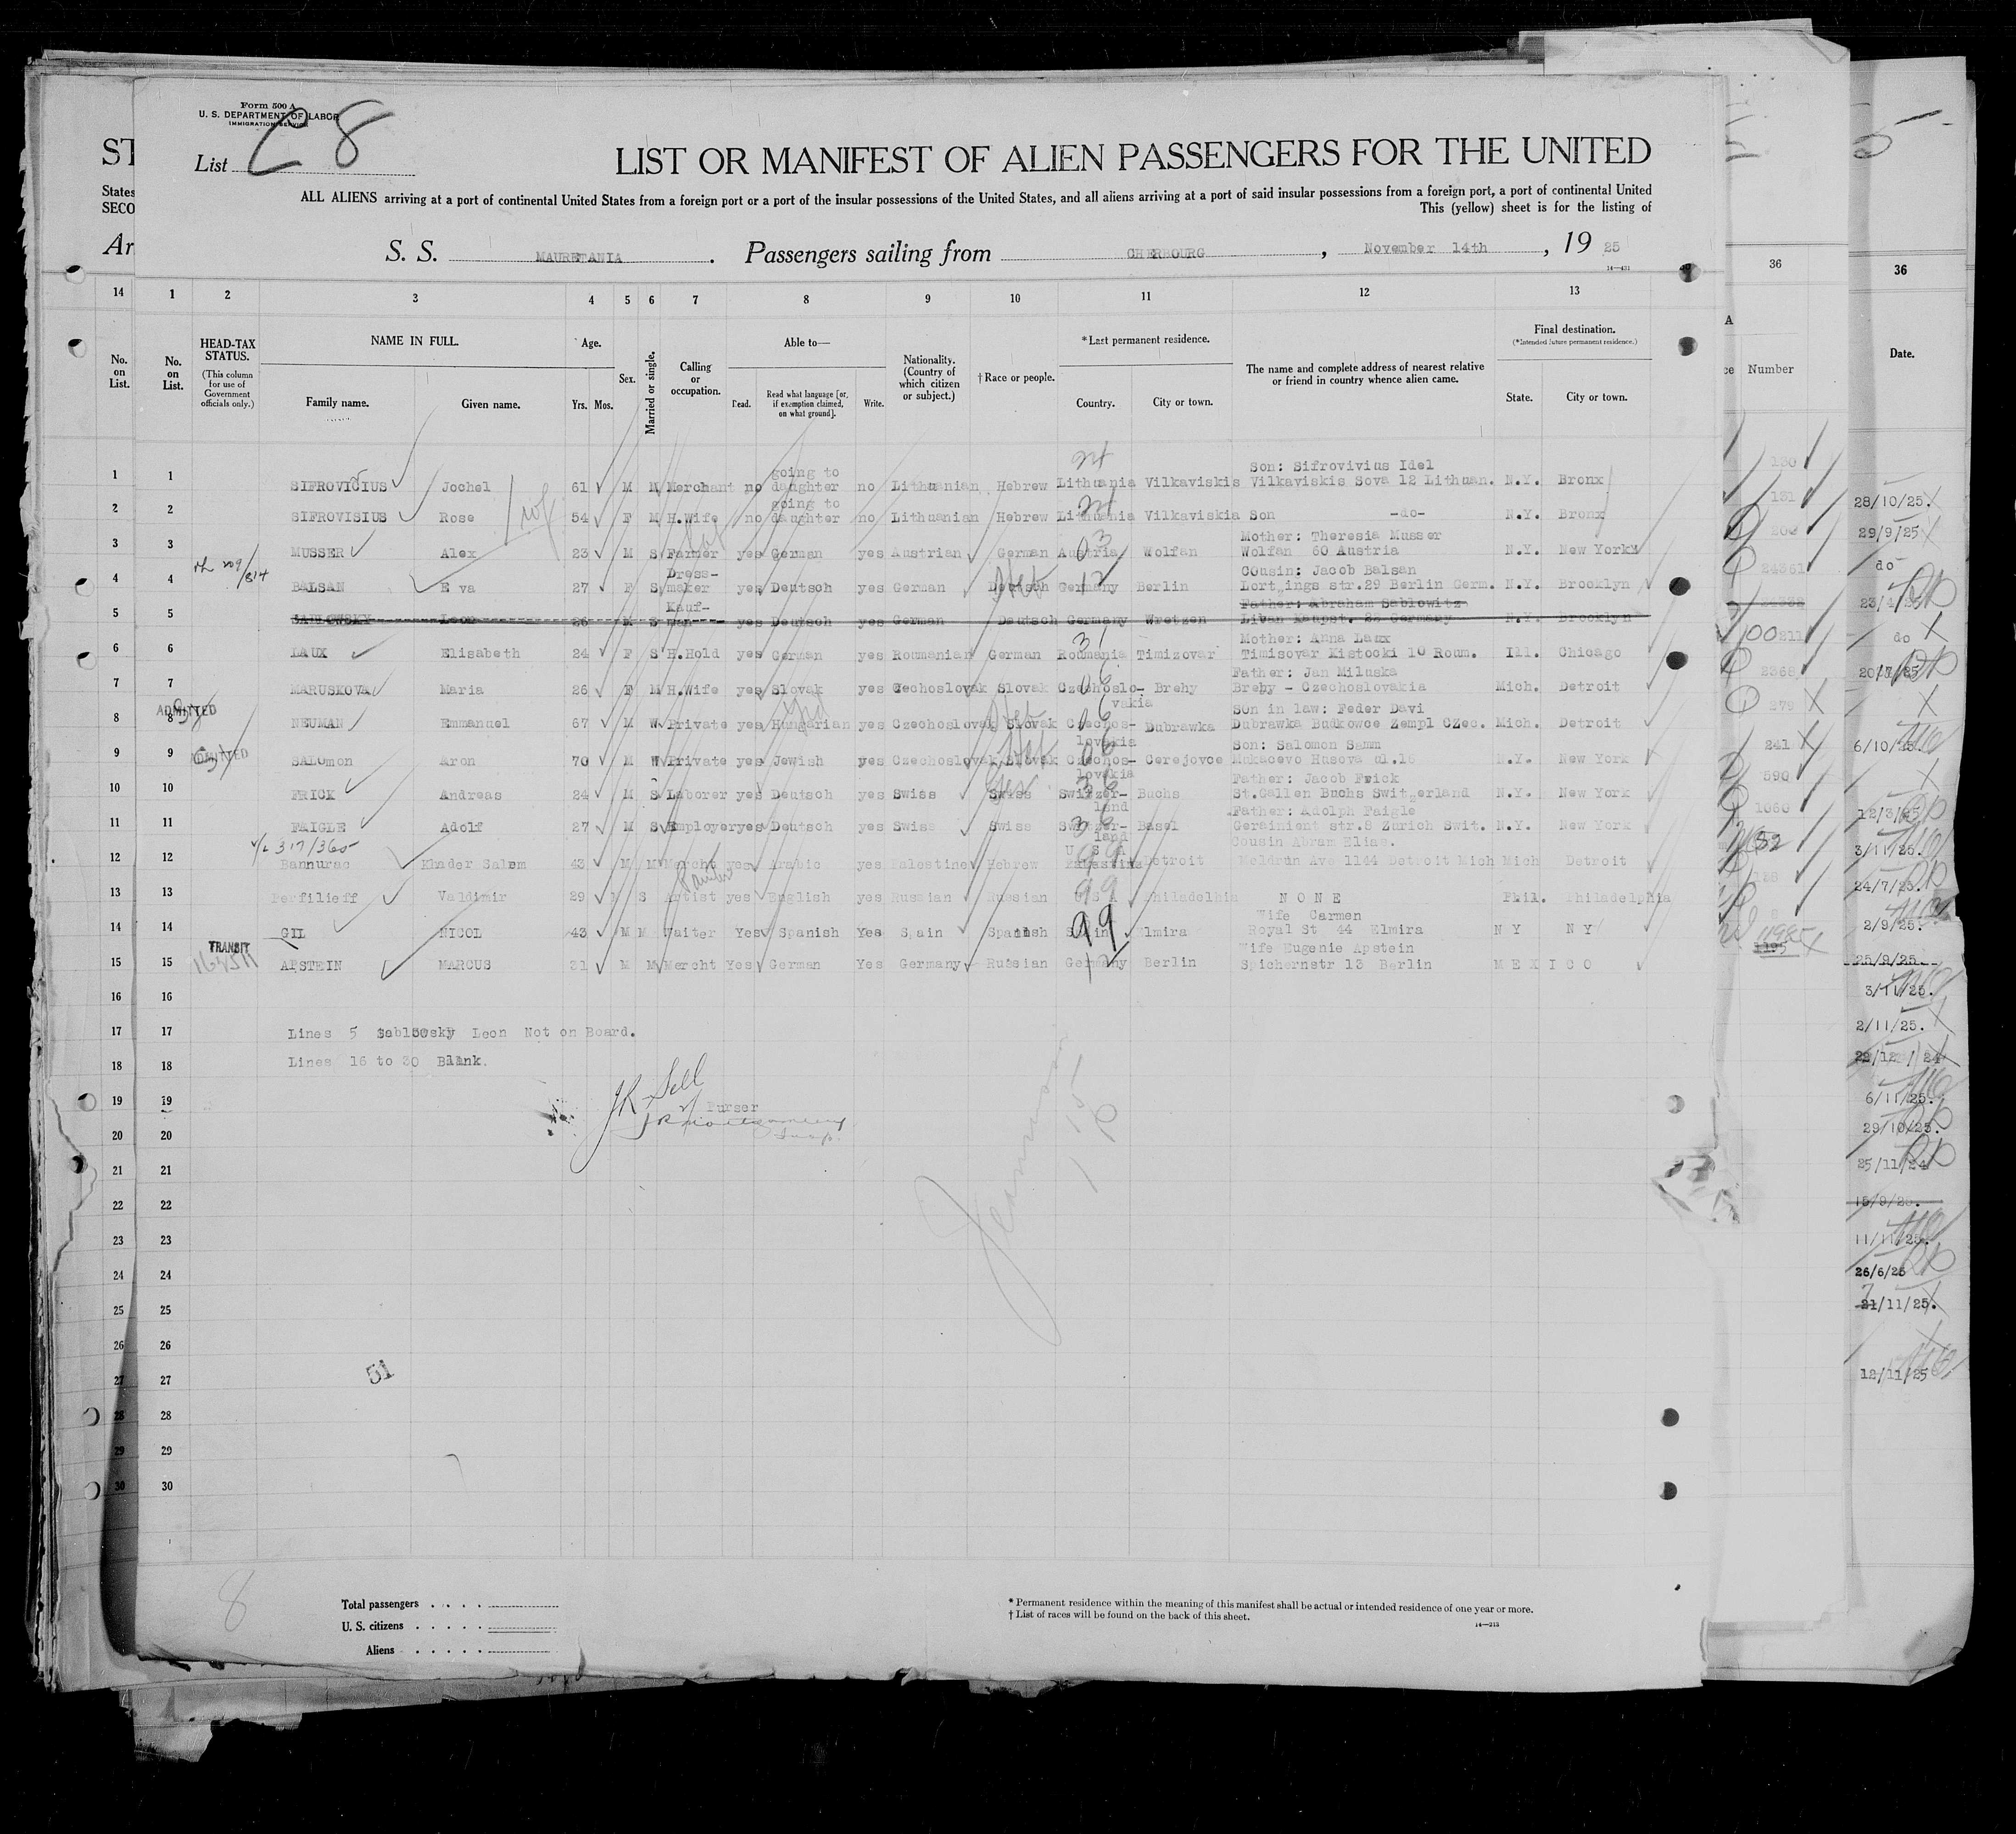 Form 500 A
U. S. DEPARTMENT OF LABOR
IMMIGRATION SERVICE
List 8
LIST OR MANIFEST OF ALIEN PASSENGERS FOR THE UNITED
ALL ALIENS arriving at a port of continental United States from a foreign port or a port of the insular possessions of the United States, and all aliens arriving at a port of said insular possessions from a foreign port, a port of continental United
This (yellow) sheet is for the listing of
S. S. MAURETANIA. Passengers sailing from CHERBOURG, November 14th, 19 25
14 1 2 3 4 5 6 7 8 9 10 11 12 13 36 36
No. on List.
No. on List.
HEAD-TAX STATUS.
(This column for use of Government officials only.)
NAME IN FULL.
Family name. Given name.
Age.
Yrs. Mos.
Sex.
Married or single.
Calling or occupation.
Able to—
Read.
Read what language [or, if exemption claimed, on what ground].
Write.
Nationality. (Country of which citizen or subject.)
† Race or people.
*Last permanent residence.
Country. City or town.
The name and complete address of nearest relative or friend in country whence alien came.
Final destination.
(*Intended future permanent residence.)
State. City or town.
Number
Date.
going to Son: Sifrovivius Idel
1 1 SIFROVICIUS Jochel 61 M M Merchant no daughter no Lithuanian Hebrew Lithuania Vilkaviskis Vilkaviskis Sova 12 Lithuan. N.Y. Bronx
going to
2 2 SIFROVISIUS Rose 54 F M H.Wife no daughter no Lithuanian Hebrew Lithuania Vilkaviskia Son -do- N.Y. Bronx
Mother: Theresia Musser
3 3 MUSSER Alex 23 M S Farmer yes German yes Austrian German Austria Wolfan Wolfan 60 Austria N.Y. New York
Dress- Cousin: Jacob Balsan
4 4 BALSAN Eva 27 F S maker yes Deutsch yes German Deutsch Germany Berlin Lort ings str.29 Berlin Germ. N.Y. Brooklyn
Kauf- Father: Abraham Sablowitz
5 5 Leon 26 M S man yes Deutsch yes German Deutsch Germany Wretzen N.Y. Brooklyn
Mother: Anna Laux
6 6 LAUX Elisabeth 24 F S H.Hold yes German yes Roumanian German Roumania Timizovar Timisovar Kistocki 10 Roum. Ill. Chicago
Father: Jan Miluska
7 7 MARUSKOVA Maria 26 F M H.Wife yes Slovak yes Czechoslovak Slovak Czechoslo- Brehy Brehy - Czechoslovakia Mich. Detroit
ADMITTED vakia Son in law: Feder Davi
8 8 NEUMAN Emmanuel 67 M W Private yes Hungarian yes Czechoslovak Slovak Czechos- Dubrawka Dubrawka Budkowce Zempl CZec. Mich. Detroit
ADMITTED lovakia Son: Salomon Samm
9 9 SALOmon Aron 70 M W Private yes Jewish yes Czechoslovak Slovak Czechos- Cerejovce Mukacevo Husova ul.16 N.Y. New York
lovakia Father: Jacob Frick
10 10 FRICK Andreas 24 M S Laborer yes Deutsch yes Swiss Swiss Switzer- Buchs St.Gallen Buchs Switzerland N.Y. New York
land Father: Adolph Faigle
11 11 FAIGLE Adolf 27 M S Employer yes Deutsch yes Swiss Swiss Switzer- Basel Gerainient str.8 Zurich Swit. N.Y. New York
317/365 land U S A Cousin Abram Elias.
12 12 Bannurac Khader Salem 43 M M Mercht yes Arabic yes Palestine Hebrew Palestine Detroit Meldrun Ave 1144 Detroit Mich Mich Detroit
13 13 Perfilieff Valdimir 29 M S Artist yes English yes Russian Russian U S A Philadelhia N O N E Phil. Philadelphia
Wife Carmen
14 14 GIL NICOL 43 M M Waiter Yes Spanish Yes Spain Spanish Spain Elmira Royal St 44 Elmira N Y N Y
TRANSIT Wife Eugenie Apstein
15 15 APSTEIN MARCUS 31 M M Mercht Yes German Yes Germany Russian Germany Berlin Spichernstr 13 Berlin M E X I C O
16 16
17 17 Lines 5 Sablowsky Leon Not on Board.
18 18 Lines 16 to 30 Blank.
19 19 JR Sell
Purser
20 20
21 21
22 22
23 23
24 24
25 25
26 26
27 27
51
28 28
29 29
30 30
28/10/25.
29/9/25
do
20/7/25
6/10/25.
12/3/25
3/11/25.
24/7/25.
2/9/25.
25/9/25.
3/11/25.
2/11/25.
6/11/25.
29/10/25.
25/11/24
11/11/25.
26/6/25
12/11/25
8
Total passengers
U. S. citizens
Aliens
* Permanent residence within the meaning of this manifest shall be actual or intended residence of one year or more.
† List of races will be found on the back of this sheet.
14—212